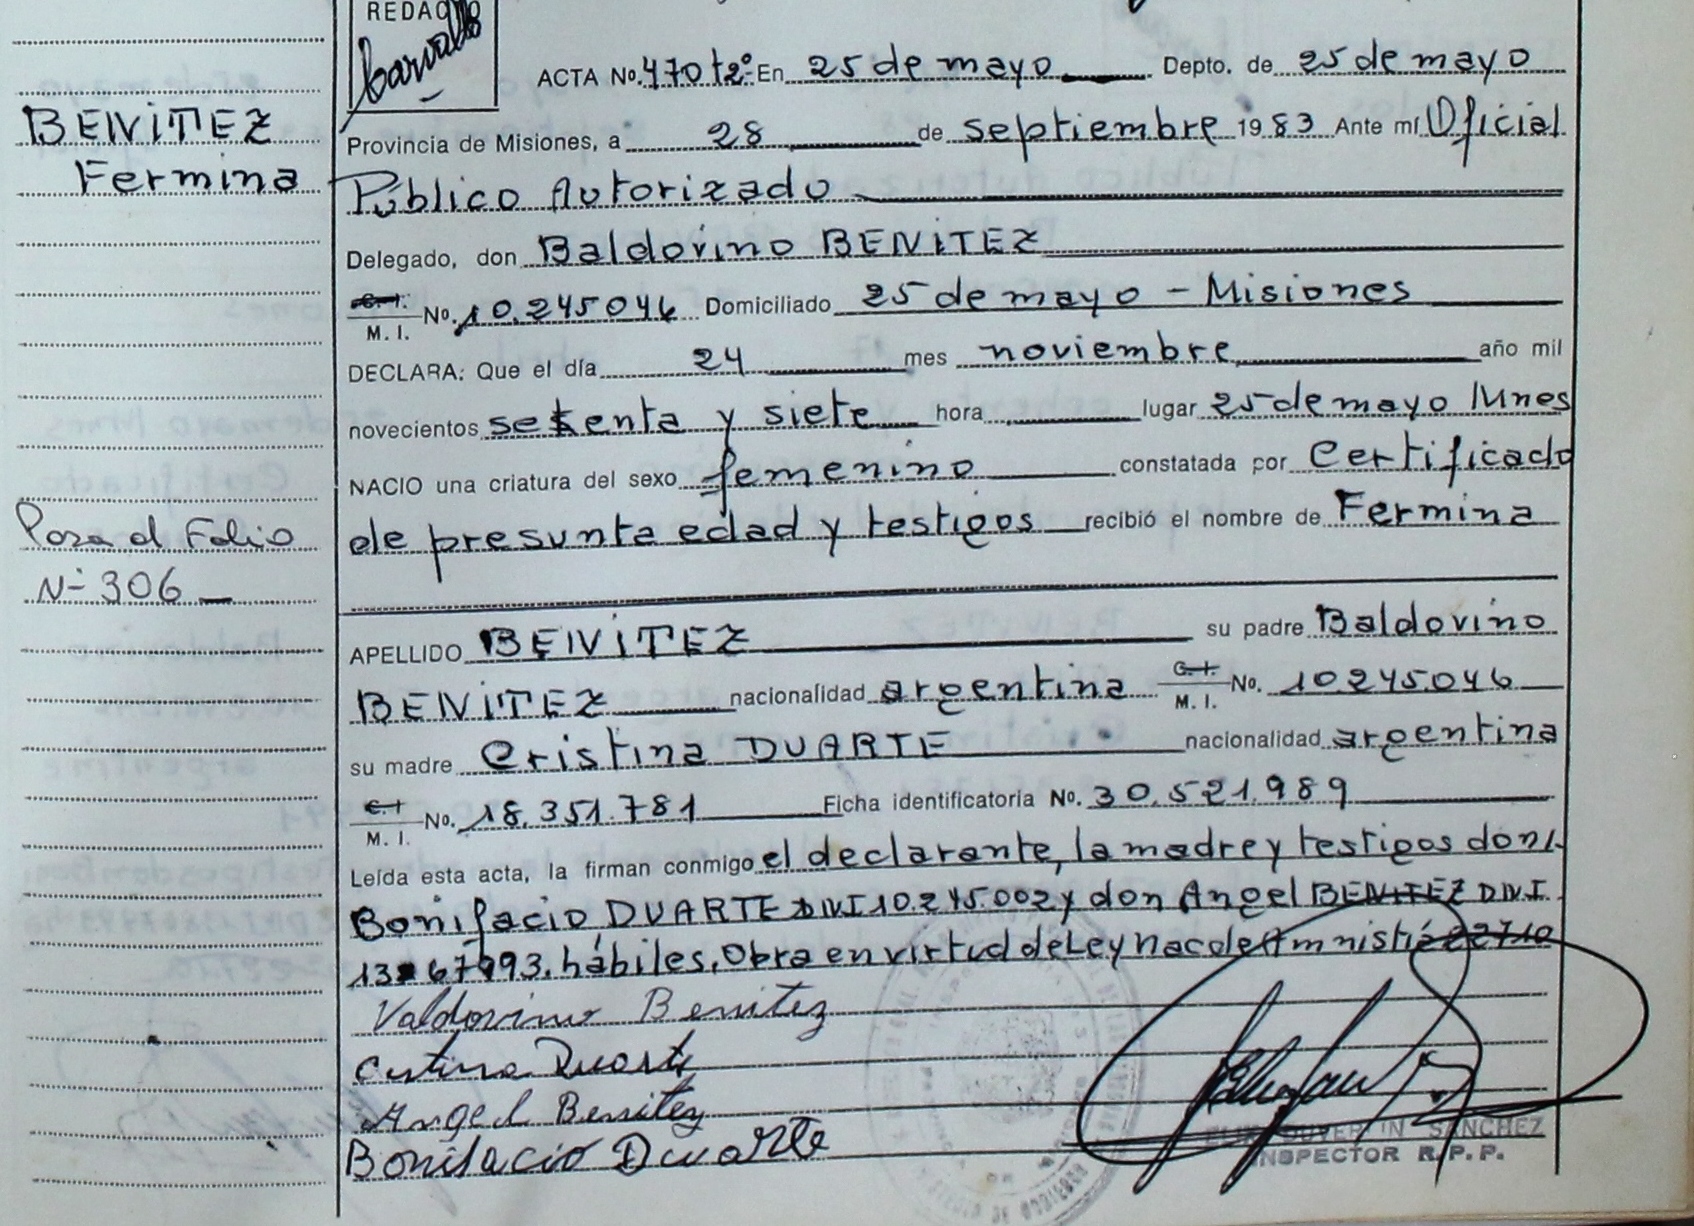 REDACTO
BENITEZ
Fermina
Pasa al Folio
Nº 306
ACTA No. 470 tº2º En 25 de mayo Depto. de 25 de mayo
Provincia de Misiones, a 28 de septiembre 1983 Ante mí Oficial
Público Autorizado
Delegado, don Baldovino BENITEZ
C.I. M. I. No. 10.245046 Domiciliado 25 de mayo - Misiones
DECLARA: Que el día 24 mes noviembre año mil
novecientos setenta y siete hora lugar 25 de mayo Mnes
NACIO una criatura del sexo femenino constatada por Certificado
de presunta edad y testigos recibió el nombre de Fermina
APELLIDO BENITEZ su padre Baldovino
BENITEZ nacionalidad argentina C.I. M. I. No. 10.245.046
su madre Cristina DUARTE nacionalidad argentina
C.I. M. I. No. 18.351.781 Ficha identificatoria No. 30.521.989
Leída esta acta, la firman conmigo el declarante, la madre y testigos don
Bonifacio DUARTE DNI 10.245.002 y don Angel BENITEZ D.N.I.
13.67993. hábiles. Obra en virtud de Ley nac de Amnistía 22710
Valdovino Benitez
Cristina Duarte
Angel Benitez
Bonifacio Duarte
SANCHEZ
INSPECTOR R. P. P.